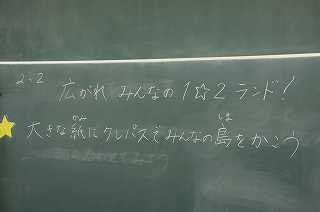 2.2
広がれ みんなの1☆2ランド!
大きな紙にクレパスでみんなの島をかこう
かみ
しま